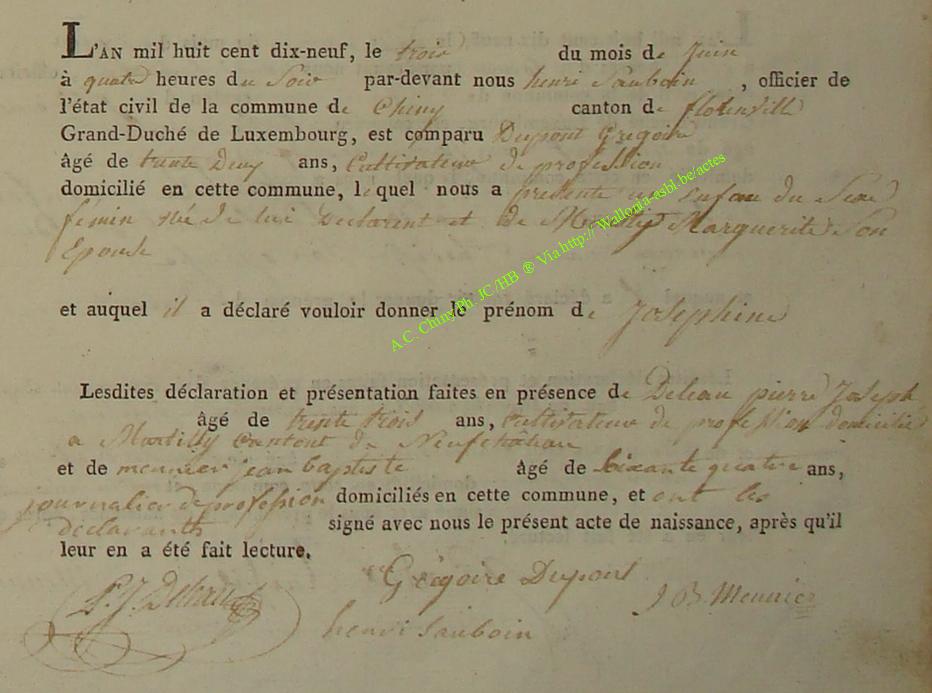 L'AN mil huit cent dix-neuf, le trois du mois de Juin
à quatre heures du Soir par-devant nous henri Sauboin , officier de
l'état civil de la commune de Chiny canton de florenville
Grand-Duché de Luxembourg, est comparu Dupont Gregoire
âgé de trente Deux ans, Cultivateur de profession
domicilié en cette commune, lequel nous a presenté un enfant du Sexe
féminin née de lui Declarent et de Marguerite Son
Epouse
et auquel il a déclaré vouloir donner le prénom de Josephine
Lesdites déclaration et présentation faites en présence de Dehau pierre Joseph
âgé de trente trois ans, cultivateur de profession domicilié
a Martilly Cantont de Neufchateau
et de meunier jean baptiste âgé de soixante quatre ans,
journalier de profession domiciliés en cette commune, et ont les
declarants signé avec nous le présent acte de naissance, après qu'il
leur en a été fait lecture.
Grégoire Dupont
P. J. Dehau J B. Meunier
henri Sauboin
A.C. Chiny Ph. JC./HB ® Via http:// Wallonia-asbl.be/actes